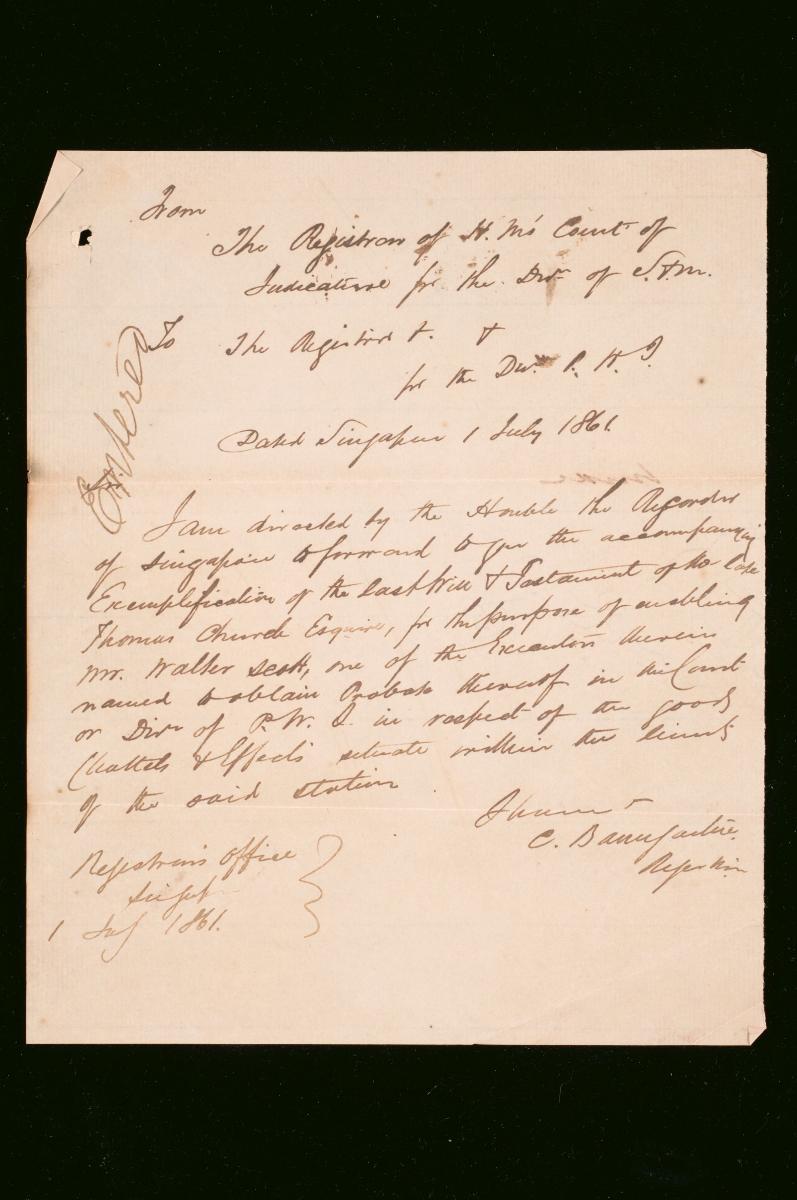 From
The Registrar of H. M's Court of
Judicature for the Divn of S. & M.
To The Registrar &. &
for the Divn P. W. I.
Entered
Dated Singapore 1 July 1861.
Sir.
I am directed by the Honble the Recorder
of Singapore to forward to you the accompanying
Exemplification of the last Will & Testament of the late
Thomas Church Esquire, for the purpose of enabling
Mr. Walter Scott, one of the Executors therein
named to obtain Probate thereof in the Court
or Divn of P. W. I. in respect of the goods
Chattels & Effects situate within the limits
of the said station
I have &
C. Baumgarten.
Registrar
Registrar's Office
Singapr
1 July 1861.